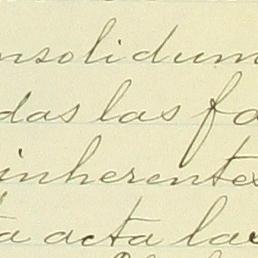 nsolidum
das las fa
inherentes
ta acta las